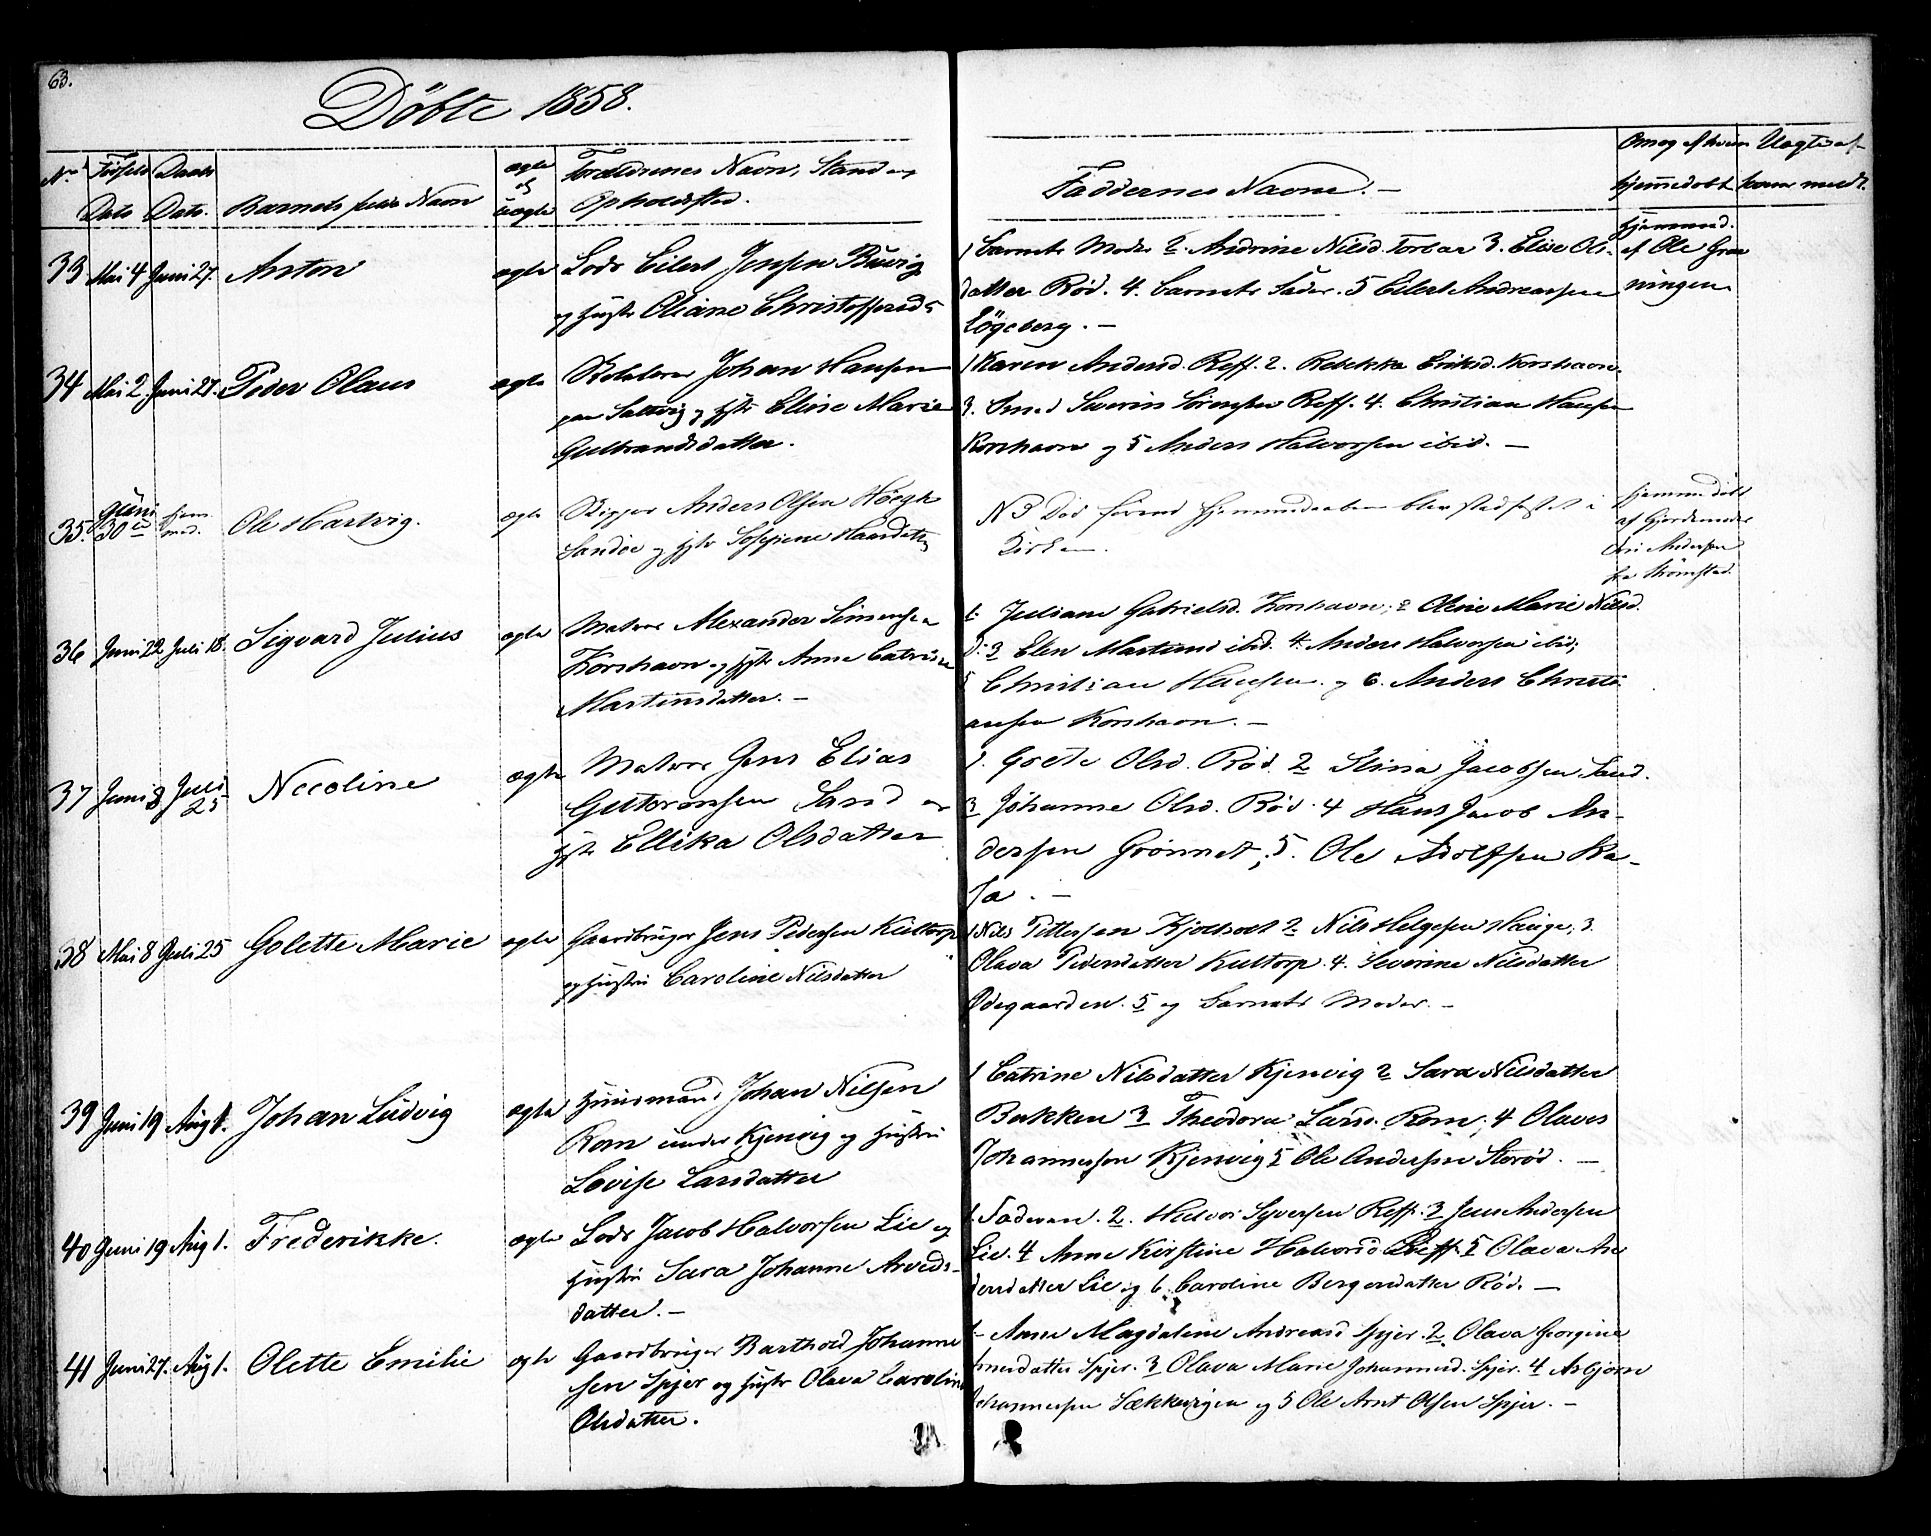 63.
Döbte 1858.
No Födsels Dato Daabs Dato. Barnets fulde Navn ægte og uægte Forældrenes Navn, Stand og Opholdssted.
Faddernes Navne. —
Om og af hvem hjemmedöbt
33 Mai 4 Juni 27. Anton ægte Lods Eilert Jensen Buvig
og Hustr Oliane Christoffersd
1 Barnets Moder 2. Andrine Nilsd. Torbar 3. Elise Ols-
datter Röd. 4. barnets Fader. 5 Eilert Andreassen
Lögeberg. —
hjemmed.
af Ole Gron
ningen
34 Mai 2. Juni 27. Peder Olaus ægte Johan Hansen
paa Saltvig og Hstr Eline Marie
Gulbrandsdatter.
1 Karen Andersd. Reff. 2. Rebekka Eriksd. Korshavn.
3. Smed Severin Sörensen Reff. 4. Christian Hansen
Korshavn og 5 Anders Halvorsen ibid. —
35. 30 hjem
med. Ole Hartvig. ægte Skipper Anders Olsen Höegh
Sandöe og Hstr
N B Död förend Hjemmedaaben blev stadfæstet i
Kirken.
hjemmedöbt
af Gjordemoder
Andersen
fra Strömstad.
36 Juni 22 Juli 18. Sigvard Julius ægte Matros Alexander Simensen
Korshavn og Hstr Anne Catrine
Martinsdatter. —
1. Juliane Gabrielsd. Korshavn; 2 Oline Marie Nilsd.
3 Elen Martinsd ibid. 4. Anders Halvorsen ibid;
5 Christian Hansen og 6. Anders Christi
ansen Korshavn. —
37 Juni 8 Juli
25 Nicoline ægte Matros Jens Elias
Gulbransen Sand og
Hstr Ellika Olsdatter
1. Olsd. Röd. 2 Stina Jacobsen Sand.
3 Johanne Olsd. Röd. 4 Hans Jacob An-
dersen Grönnet; 5. Ole Adolfsen Ba-
sa. —
38 Mai 8 Juli 25 Golette Marie ægte Gaardbruger Jens Pedersen Kultorp
og Hustru Caroline Nilsdatter
1 Nils Pettersen 2 Nils Helgesen Hauge; 3.
Olava Pedersdatter Kultorp. 4. Severine Nilsdatter
Ödegaarden. 5 og Barnets Moder. —
39 Juni 19 Aug 1. Johan Ludvig ægte Huusmand Johan Nilsen
Rom under Kjenvig og Hustru
Lovise Larsdatter
1 Catrine Nilsdatter Kjenvig 2 Sara Nilsdatter
Bakken 3 Theodora Larsd. Rom; 4 Olaves
Johannesen Kjenvig 5 Ole Andersen Storöd. —
40 Juni 19 Aug 1. Frederikke. ægte Lods Jacob Halvorsen Lie og
Hustru Sara Johanne Arveds-
datter. —
1. Faderen. 2. Halvor Syversen Reff. 3 Jens Andersen
Lie. 4 Anne Kirstine Halvorsd Reff. 5 Olava An
dersdatter Lie og 6. Caroline Bergersdatter Röd. —
41 Juni 27. Aug 1. Olette Emilie ægte Gaardbruger Barthold Johanne
sen Spjer og Hustr Olava Caroline
Olsdatter.
1. Anne Magdalene Andreasd Spjer. 2. Olava Georgine
datter Spjer. 3 Olava Marie Johannesd. Spjer. 4 Asbjörn
Johannesen og 5 Ole Arnt Olsen Spjer. —